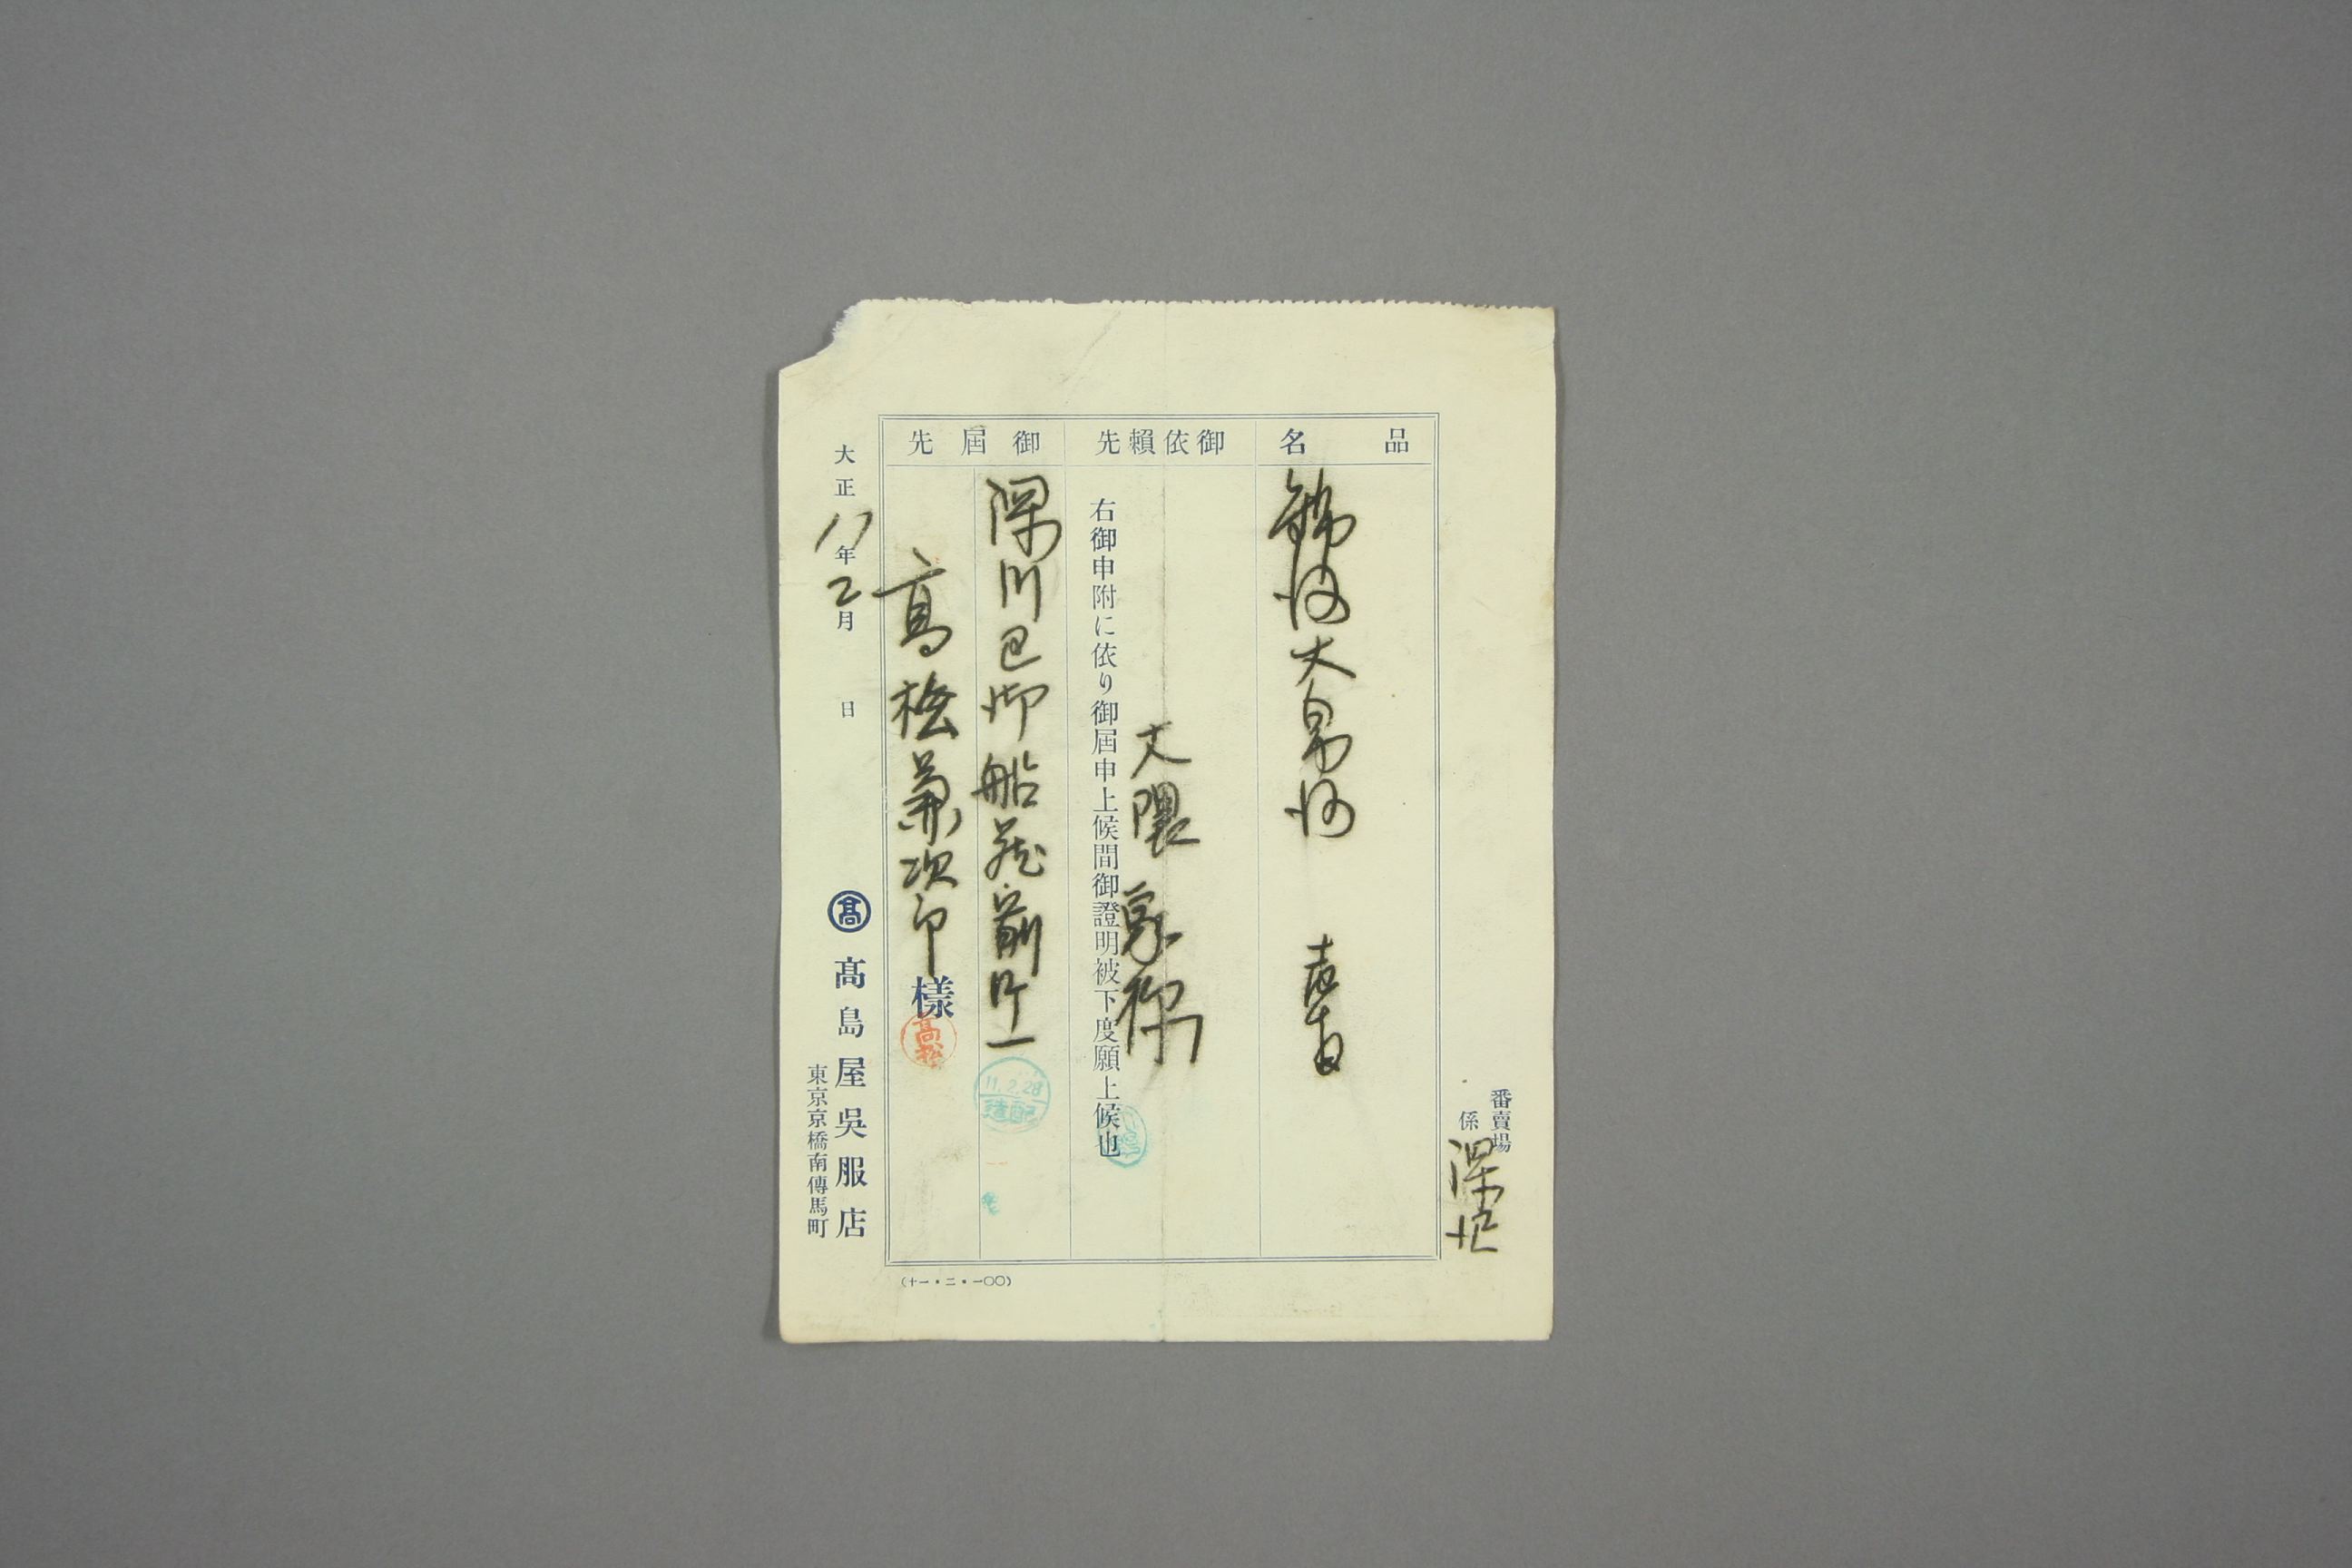 番賣場
係 深
品名
錦紗大帛紗 壹
御依賴先
大隈家
右御申附に依り御屆申上候間御證明被下度願上候也
御屆先
深川區御船蔵前町一
11.2.28
配達
高松兼次郎様
高松
大正11年2月 日
髙
髙島屋吳服店
東京京橋南傳馬町
(十一・二・一〇〇)